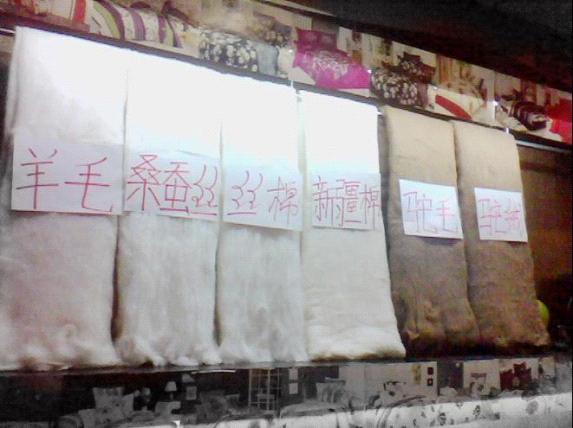 羊毛
桑蚕丝
丝棉
新疆棉
驼毛
驼绒